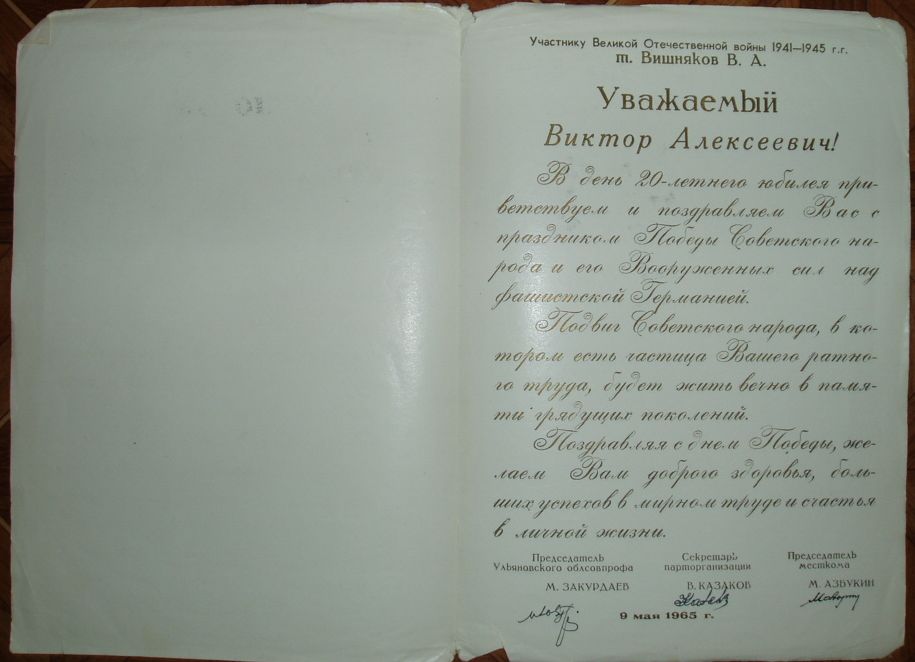 Участнику Великой Отечественной войны 1941—1945 г.г.
т. Вишняков В. А.
Уважаемый
Виктор Алексеевич!
В день 20-летнего юбилея при-
ветствуем и поздравляем Вас с
праздником Победы Советского на-
рода и его Вооруженных сил над
фашистской Германией.
Подвиг Советского народа, в ко-
тором есть частица Вашего ратно-
го труда, будет жить вечно в памя-
ти грядущих поколений.
Поздравляя с днем Победы, же-
лаем Вам доброго здоровья, боль-
ших успехов в мирном труде и счастья
в личной жизни.
Председатель
Ульяновского облсовпрофа
М. ЗАКУРДАЕВ
Секретарь
парторганизации
В. КАЗАКОВ
Председатель
месткома
М. АЗБУКИН
9 мая 1965 г.